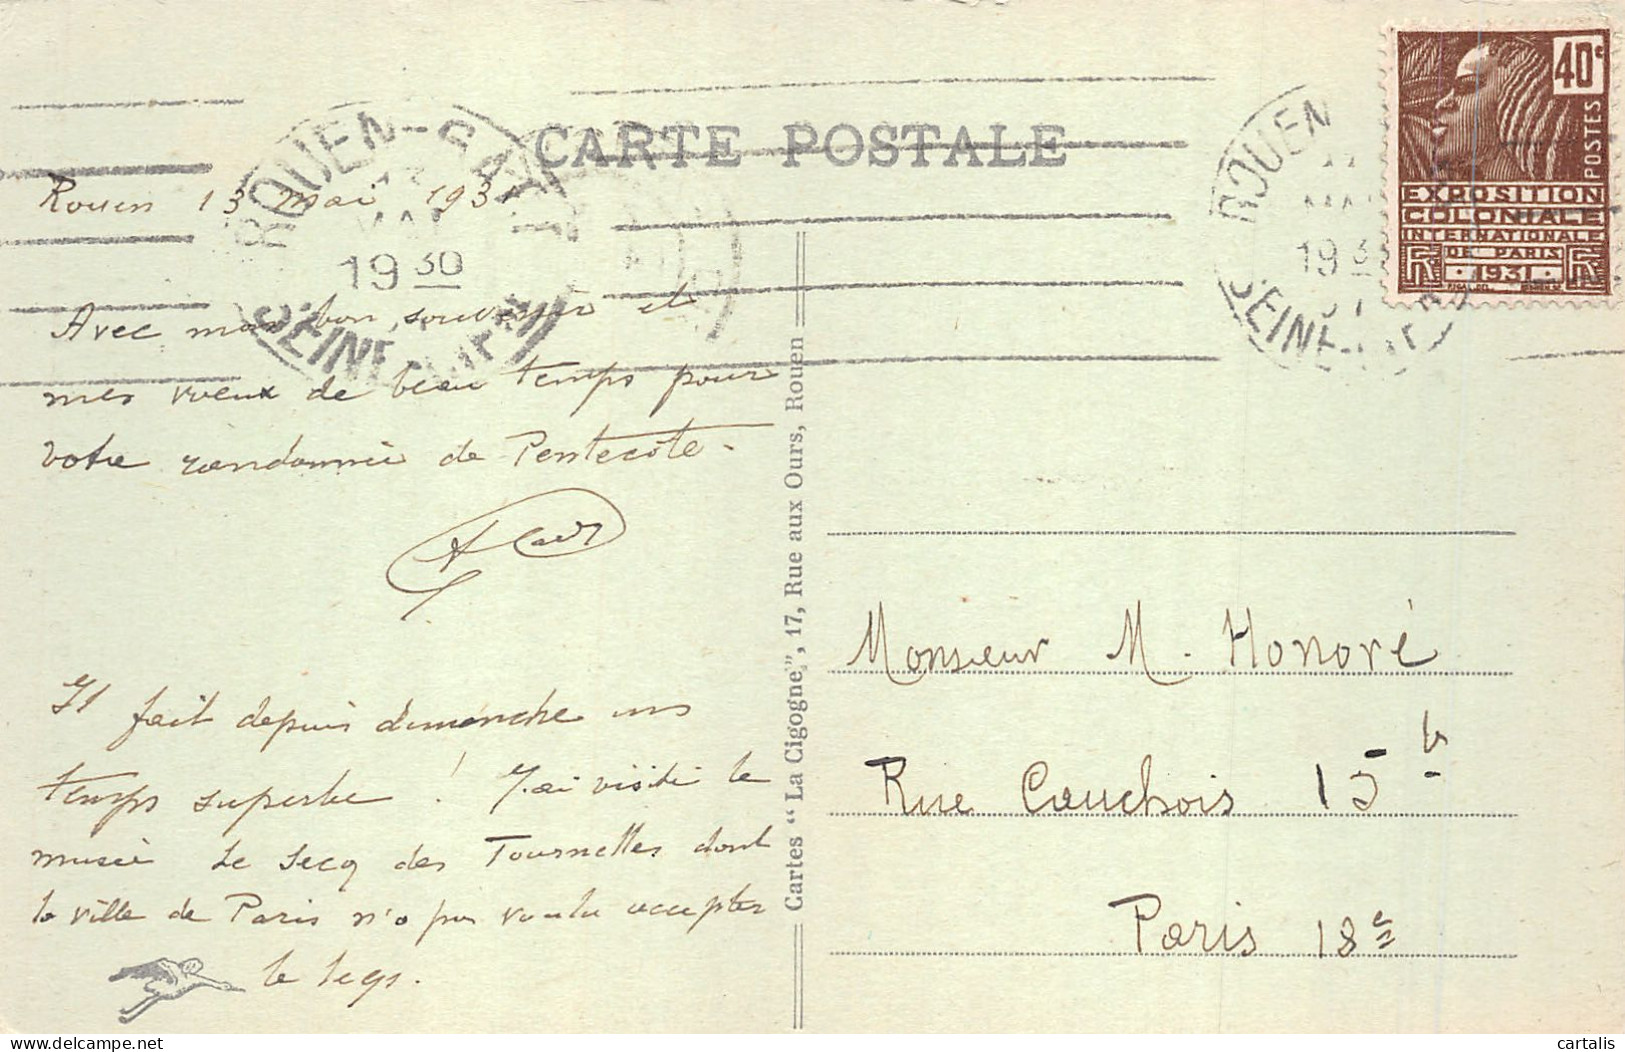 CARTE POSTALE
ROUEN-GA
19 30
SEINE
ROUEN
19 3
SEINE
40c
POSTES
EXPOSITION
COLONIALE
INTERNATIONALE
DE PARIS
RF 1931 RF
Rouen 13 mai 193
Avec mon bon souvenir et
mes voeux de beau temps pour
votre randonnée de Pentecôte -
Il fait depuis dimanche un
temps superbe ! J'ai visité le
musée Le Secq des Tournelles dont
la ville de Paris n'a pas voulu accepter
le legs.
Cartes "La Cigogne", 17, Rue aux Ours, Rouen
Monsieur M. Honoré
Rue Cauchois 15 b
Paris 18e
cartalis